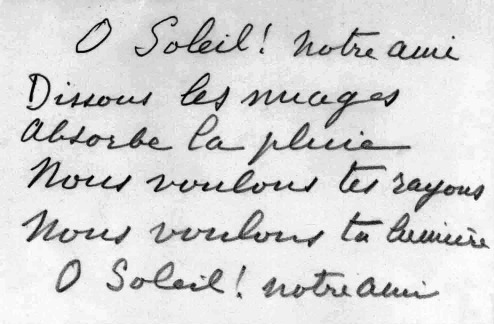 O Soleil! notre ami
Dissous les nuages
Absorbe la pluie
Nous voulons tes rayons
Nous voulons ta lumière
O Soleil! notre ami